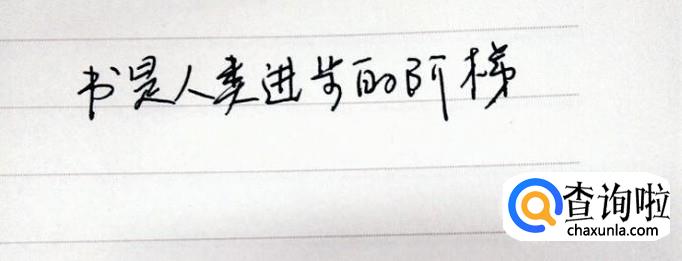 书是人类进步的阶梯
查询啦
chaxunla.com